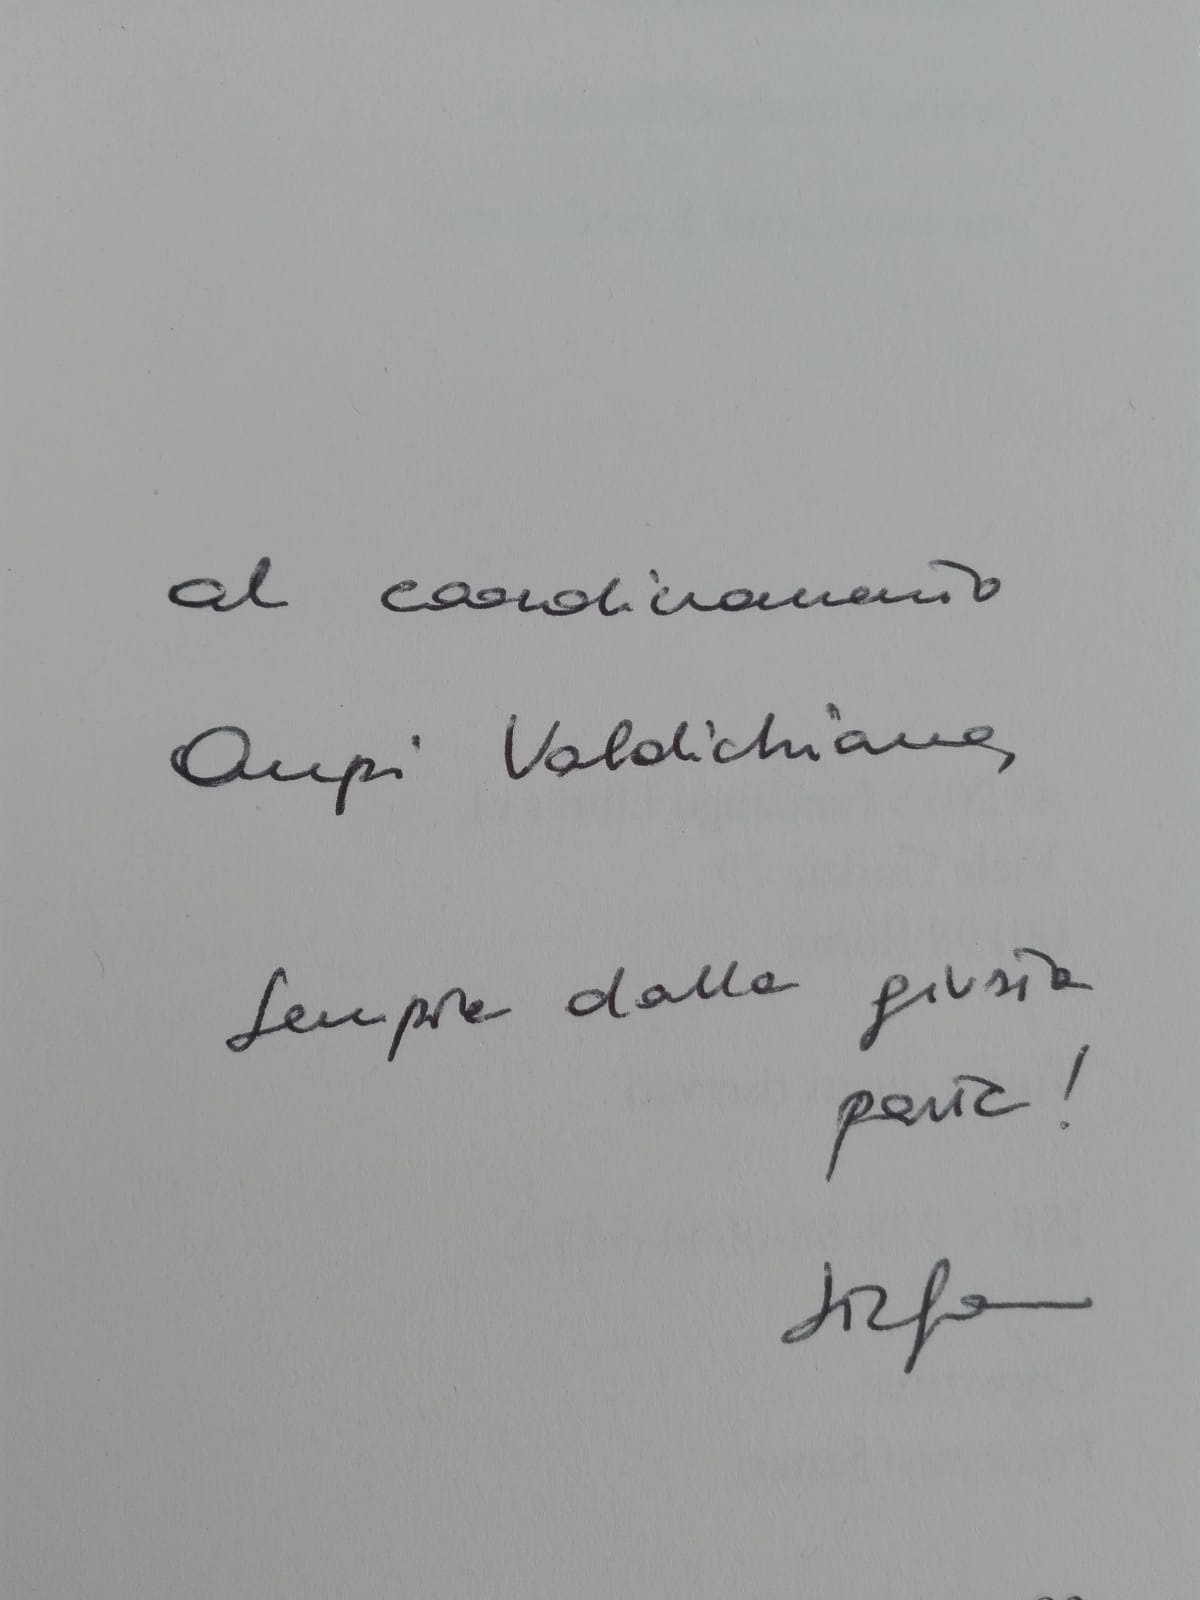 al coordinamento
Anpi Valdichiana,
Sempre dalla giusta
parte!